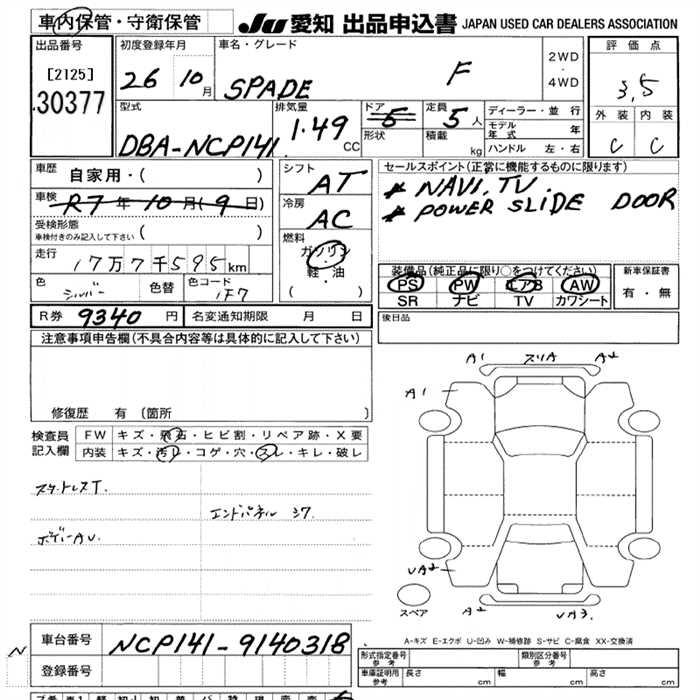 車内保管・守衛保管
JU 愛知 出品申込書 JAPAN USED CAR DEALERS ASSOCIATION
出品番号
[2125]
30377
初度登録年月
26 10月
車名・グレード
SPADE F
2WD
・
4WD
評価点
3.5
外装 内装
C C
型式
DBA-NCP141
排気量
1.49 CC
ドア
5
形状
定員
5人
積載
kg
ディーラー・並行
モデル年式 年
ハンドル 左・右
車歴
自家用・( )
車検
R7年10月(9日)
受検形態
車検付きのみ記入して下さい ( )
走行
17万7千595km
色
シルバー
色替
色コード
1F7
シフト
AT
冷房
AC
燃料
ガソリン
・
軽・油
( )
セールスポイント(正常に機能するものに限ります)
* NAVI.TV
* POWER SLIDE DOOR
装備品(純正品に限り○をつけてください)
PS PW エアB AW
SR ナビ TV カワシート
新車保証書
有・無
R券 9340 円 名変通知期限 月 日
後日品
注意事項申告欄(不具合内容等は具体的に記入して下さい)
修復歴 有(箇所 )
検査員
記入欄
FW キズ・飛石・ヒビ割・リペア跡・X要
内装 キズ・汚レ・コゲ・穴・スレ・キレ・破レ
スタットレスT.
エンドパネルシワ.
ボデーAU.
A1 スリA A2
A1
UA2
A2 UA3.
スペア
A-キズ E-エクボ U-凹み W-補修跡 S-サビ C-腐食 XX-交換済
N
車台番号 NCP141-9140318
登録番号
形式指定番号
参考
類別区分番号
参考
車庫証明用
参考
長さ cm 幅 cm 高さ cm